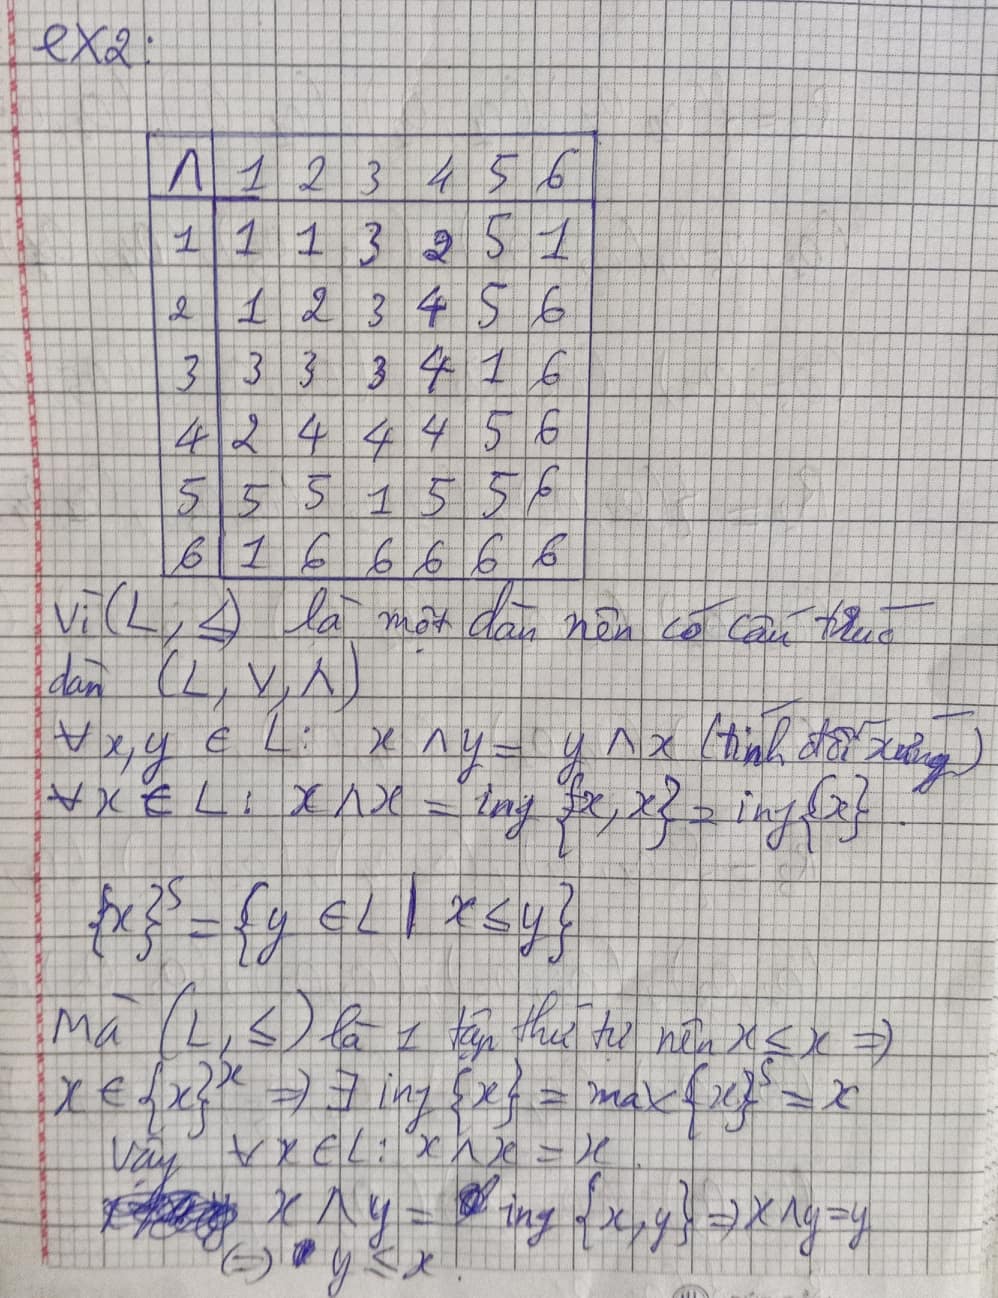 ex2:
∧ 1 2 3 4 5 6
1 1 1 3 2 5 1
2 1 2 3 4 5 6
3 3 3 3 4 1 6
4 2 4 4 4 5 6
5 5 5 1 5 5 6
6 1 6 6 6 6 6
Vì (L, ≤) là một dàn nên có cấu trúc
dàn (L, ∨, ∧)
∀x,y ∈ L: x ∧ y = y ∧ x (tính đối xứng)
∀x ∈ L: x ∧ x = inf {x, x} = inf {x}.
{x}^S = {y ∈ L | x ≤ y}
Mà (L, ≤) là 1 tập thứ tự nên x ≤ x ⇒
x ∈ {x}^x ⇒ ∃ inf {x} = max {x}^S = x
Vậy ∀x ∈ L: x ∧ x = x.
x ∧ y = inf {x, y} ⇒ x ∧ y = y
(=) y ≤ x.